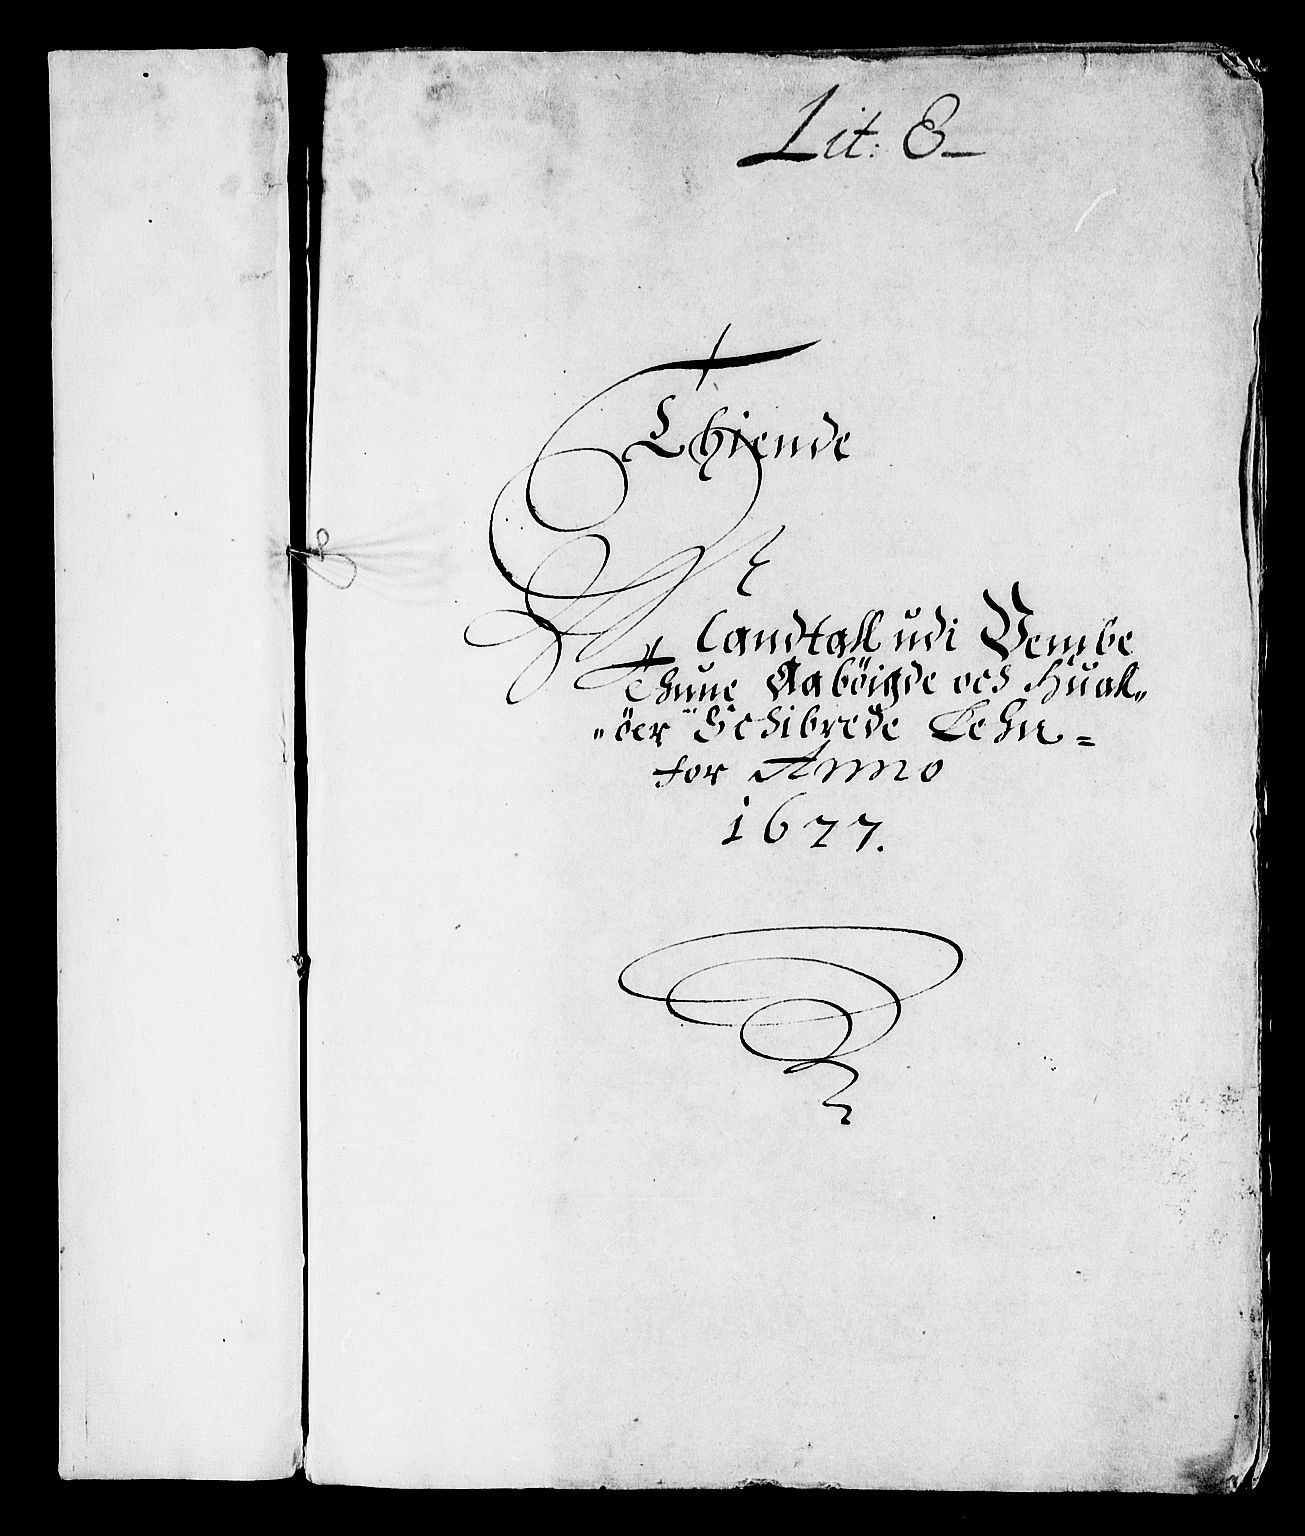 Lit: E
Thiende
Landtall udi Vembe
Thune Aabøigde och Hual„
„öer Schibrede Lehn =
for Anno
1677.